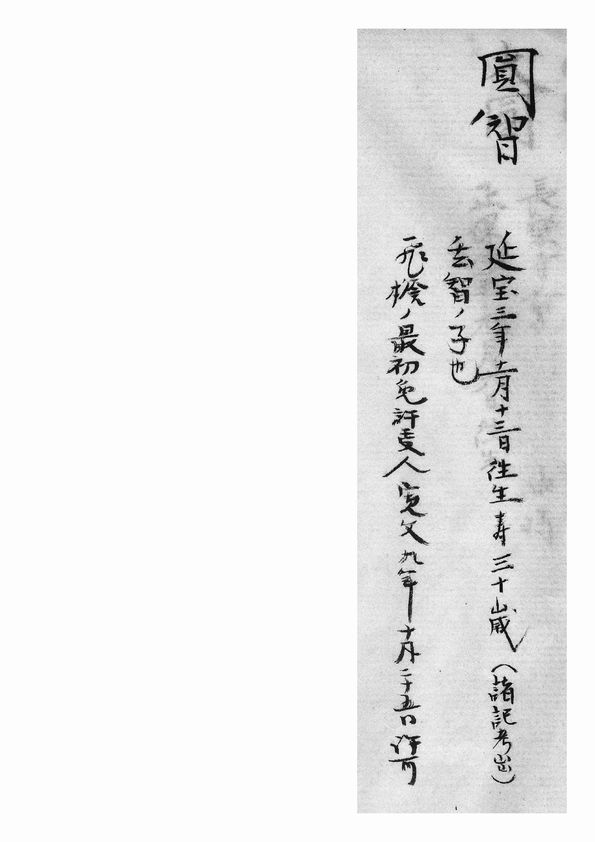 圓智
延宝三年十一月十三日往生寿三十歳（諸記考出）
玄智ノ子也
飛檐ノ最初免許之人寛文九年十月二十五日許可